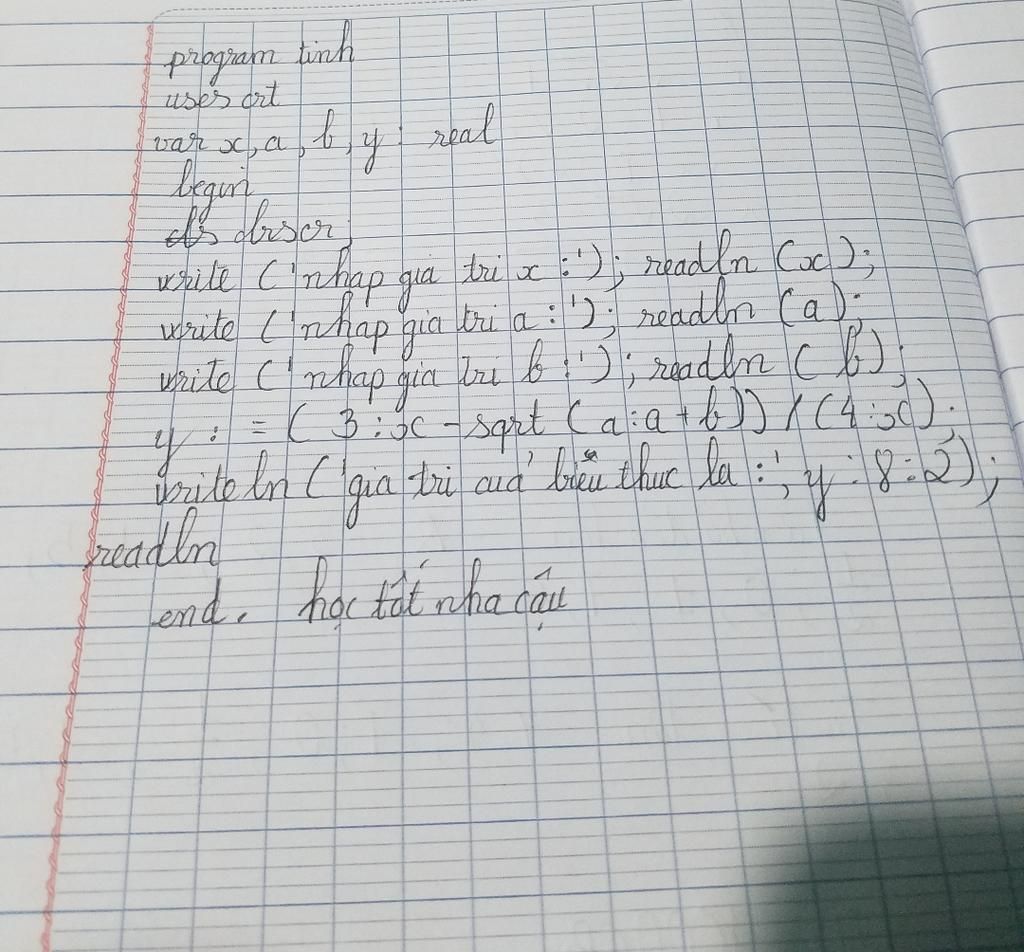 program tinh
uses crt
var x, a, b, y : real
begin
clrscr;
write ('nhap gia tri x :'); readln (x);
write ('nhap gia tri a :'); readln (a);
write ('nhap gia tri b :'); readln (b);
y : = ( 3 : x - sqrt (a : a + b)) / (4 : x);
writeln ('gia tri cuả biểu thuc la :', y : 8 : 2);
readln
end. học tốt nha cậu